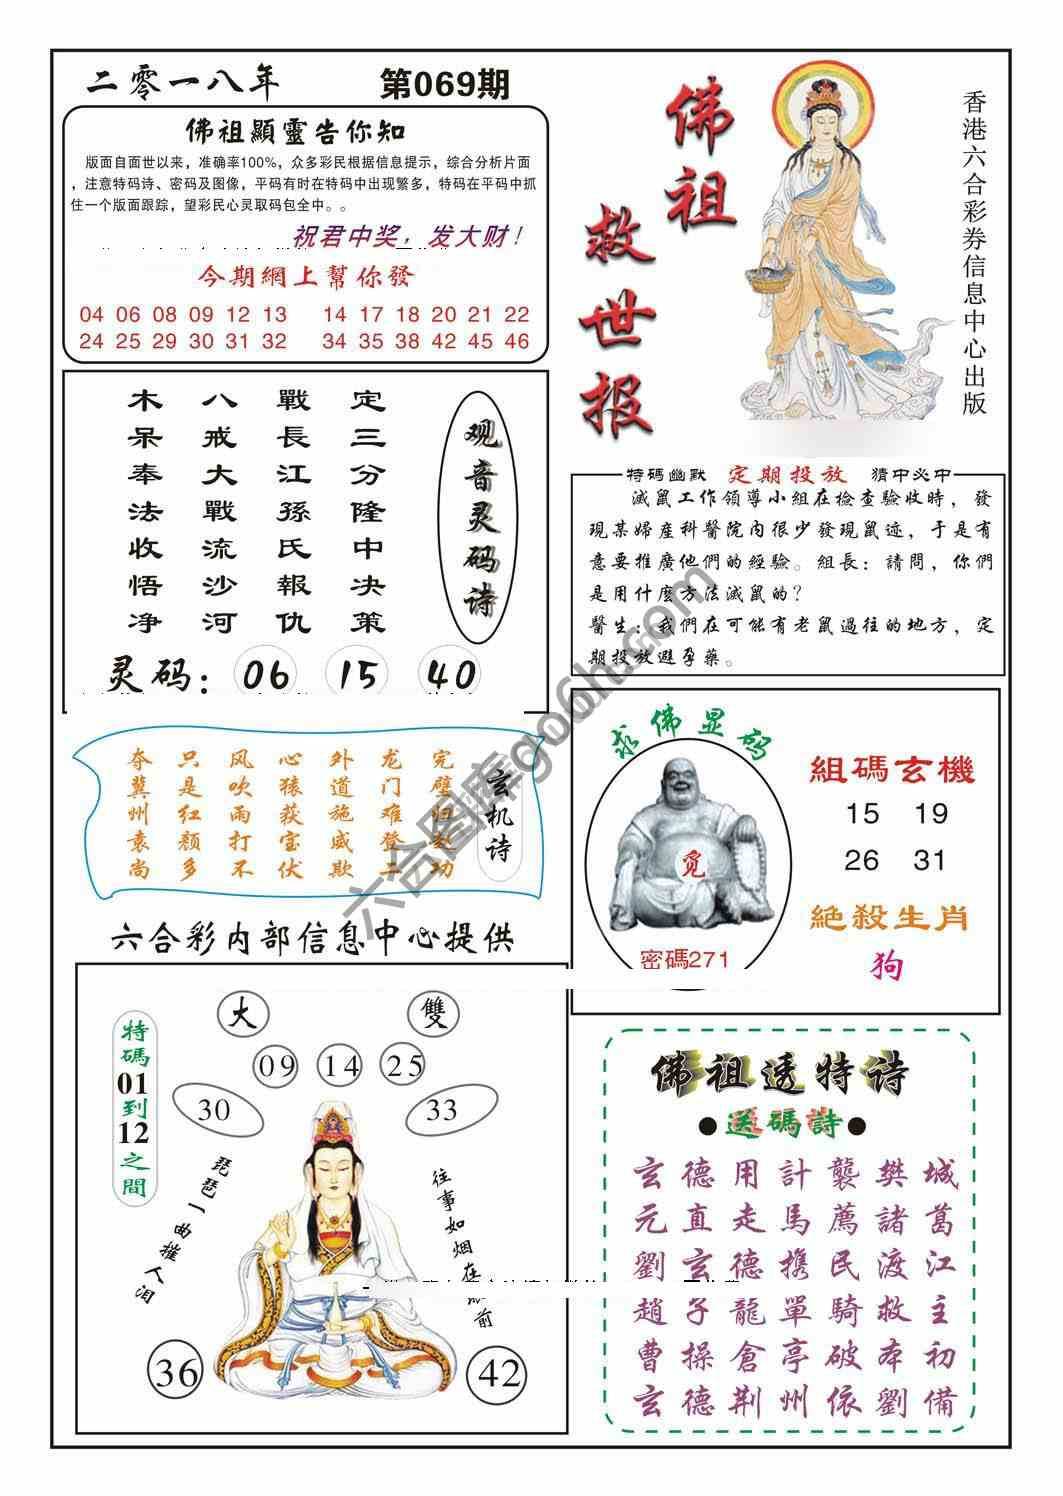 二零一八年 第069期
佛祖顯靈告你知
版面自面世以来，准确率100%，众多彩民根据信息提示，综合分析片面
，注意特码诗、密码及图像，平码有时在特码中出现繁多，特码在平码中抓
住一个版面跟踪，望彩民心灵取码包全中。。
祝君中奖，发大财！
今期網上幫你發
04 06 08 09 12 13 14 17 18 20 21 22
24 25 29 30 31 32 34 35 38 42 45 46
佛祖
救世报
香港六合彩券信息中心出版
观音灵码诗
定三分隆中决策
戰長江孫氏報仇
八戒大戰流沙河
木呆奉法收悟净
灵码：06 15 40
特碼幽默 定期投放 猜中必中
滅鼠工作領導小組在檢查驗收時，發
現某婦産科醫院内很少發現鼠迹，于是有
意要推廣他們的經驗。組長：請問，你們
是用什麽方法滅鼠的？
醫生：我們在可能有老鼠過往的地方，定
期投放避孕藥。
玄机诗
完璧归赵功
龙门难登二
外道施威欺
心猿获宝伏
风吹雨打不
只是红颜多
夺冀州袁尚
求佛显码
觅
密碼271
組碼玄機
15 19
26 31
絕殺生肖
狗
六合彩内部信息中心提供
大 雙
09 14 25
30 33
特碼01到12之間
琵琶一曲摧人泪
往事如烟在 前
36 42
佛祖透特诗
●送碼詩●
玄德用計襲樊城
元直走馬薦諸葛
劉玄德携民渡江
趙子龍單騎救主
曹操倉亭破本初
玄德荆州依劉備
六合图库go6h.com